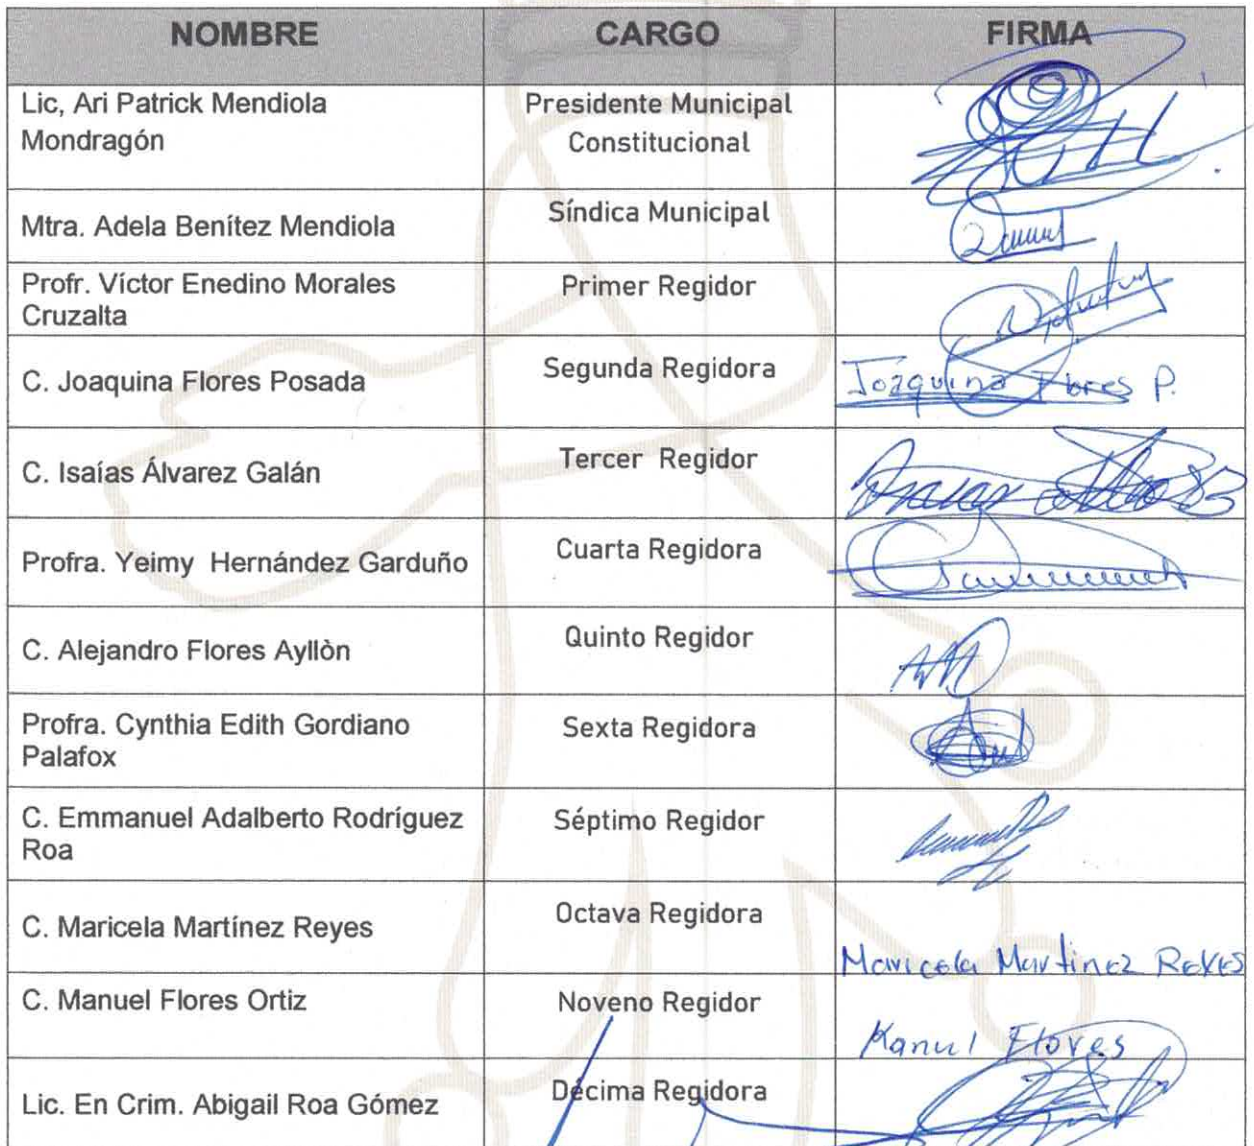 NOMBRE CARGO FIRMA
Lic, Ari Patrick Mendiola Presidente Municipal
Mondragón Constitucional
Mtra. Adela Benítez Mendiola Síndica Municipal
Profr. Víctor Enedino Morales Primer Regidor
Cruzalta
C. Joaquina Flores Posada Segunda Regidora Joaquina Flores P.
C. Isaías Álvarez Galán Tercer Regidor
Profra. Yeimy Hernández Garduño Cuarta Regidora
C. Alejandro Flores Ayllòn Quinto Regidor
Profra. Cynthia Edith Gordiano Sexta Regidora
Palafox
C. Emmanuel Adalberto Rodríguez Séptimo Regidor
Roa
C. Maricela Martínez Reyes Octava Regidora Maricela Martinez Reyes
C. Manuel Flores Ortiz Noveno Regidor Manuel Flores
Lic. En Crim. Abigail Roa Gómez Décima Regidora